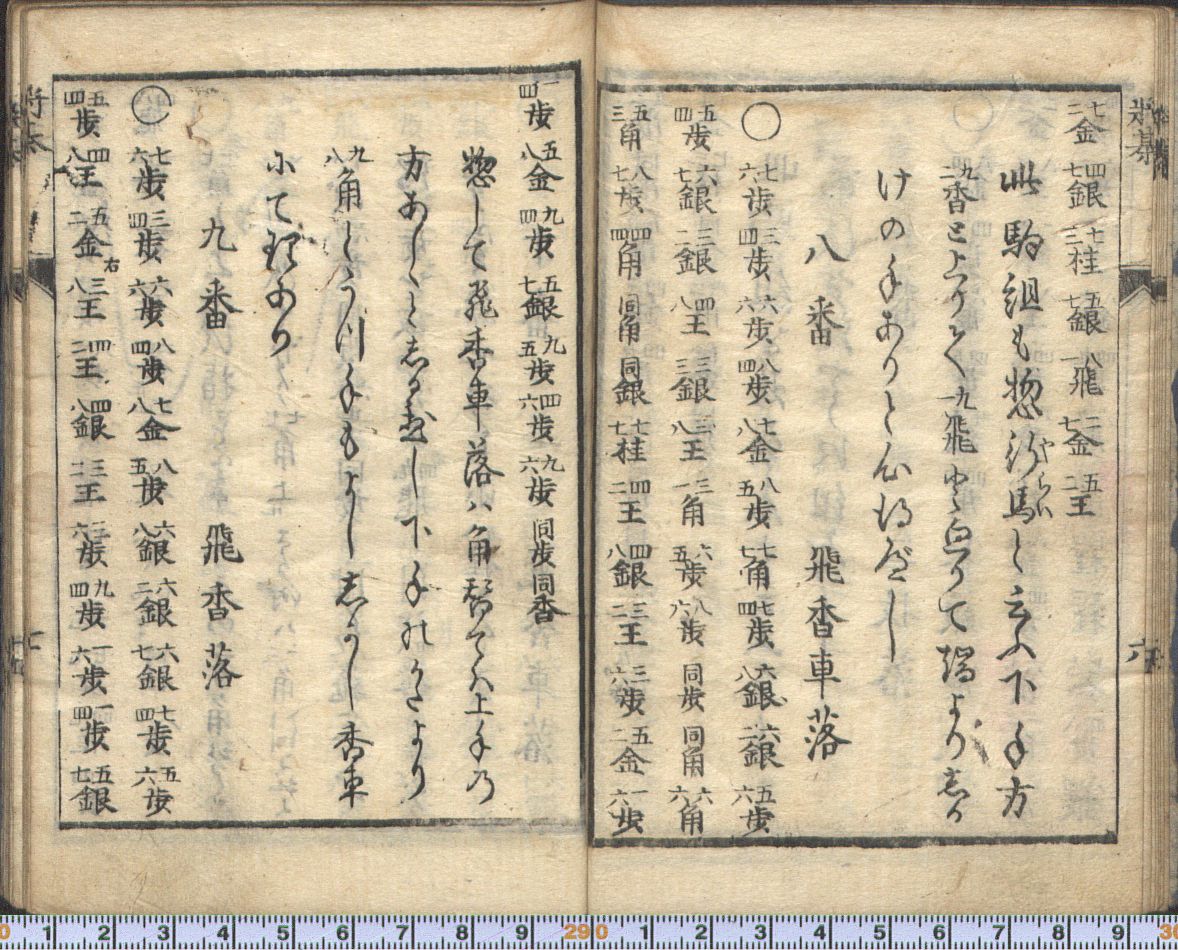 将棊
六
七二金 四七銀 七三桂 五七銀 八一飛 二七金 五二王
此駒組も惣行馬と云ふ下手方
やらい
九二香と上りて九一飛と廻りて端より志か
けの手ありと心得べし
八番 飛香車落
〇 七六歩 三四歩 六六歩 八四歩 七八金 八五歩 七七角 七四歩 六八銀 六二銀 五六歩
五四歩 六七銀 三二銀 四八王 三三銀 三八王 三一角 六五歩 八六歩 同歩 同角 六六角
五三角 八七歩 四四角 同角 同銀 七七桂 四二王 四八銀 三二王 三六歩 五二金 一六歩
一四歩 五八金 九四歩 五七銀 九五歩 四六歩 九六歩 同歩 同香
惣して飛香車落ハ角替てハ上手乃
方あしゝと志るべし下手れかたより
九八角とうつ手もよし志かし香車
にて利あり
九番 飛香落
〇 七六歩 三四歩 六六歩 八四歩 七八金 八五歩 六八銀 六二銀 六七銀 七四歩 五六歩
五四歩 四八王 五二金右 三八王 四二王 四八銀 三二王 三六歩 九四歩 一六歩 一四歩 五七銀
将棊
七